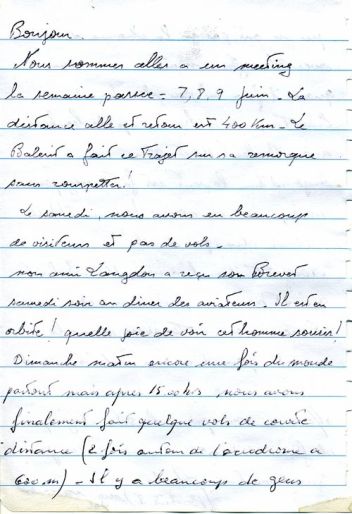 Bonjour.
Nous sommes alles a un meeting
la semaine passee = 7, 8 9 Juin - La
distance alle et retour est 400 Km - Le
a fait ce Trajet sur sa remorque
sans rouspetter!
Le samedi nous avons eu beaucoup
de visiteurs et pas de vols -
mon ami Langdon a reçu son Brevet
samedi soir au diner des aviateurs - Il est en
orbite! quelle joie de voir cet homme sourire!
Dimanche matin encore une fois du monde
partout mais apres 15.00 hrs, nous avons
finalement fait quelque vols de courte
distance (2 fois autour de l'aerodrome a
600 m) - Il y a beaucoup de gens